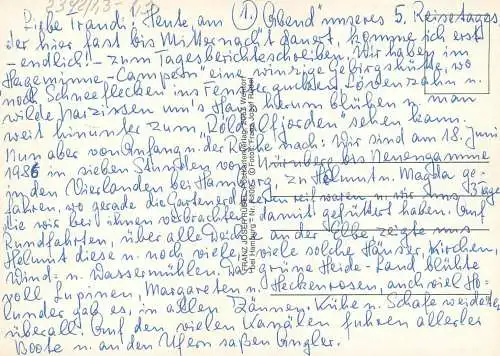 2392/13-13
Liebe Traudi! Heute am (1) Abend unseres 5. Reisetages
der hier fast bis Mitternacht dauert, komme ich erst
-endlich!- zum Tagesberichteschreiben. Wir haben im
Hageminne-Campern eine winzige Gebirgshütte, wo
noch Schneeflecken ins Fenster gucken. Löwenzahn u.
wilde Narzissen um's Haus herum blühen u. man
weit hinunter zum "Röldalsfjorden" sehen kann.
Nun aber von Anfang u. der Reihe nach: Wir sind am 18. Juni
1986 in sieben Stunden von Nürnberg bis Neuengamme
in den Vierlanden bei Hamburg, zu Helmut u. Magda ge-
fahren, wo gerade die Gartenerdbeeren reif waren u. wir uns 3 Tage
die wir bei ihnen verbrachten, damit gefüttert haben. Auf
Rundfahrten, über alle Deiche an der Elbe zeigte uns
Helmut diese u. noch viele, viele solche Häuser, Kirchen,
Wind- u. Wassermühlen. Grüne Heide-Land blühte
voll Lupinen, Margareten u. Heckenrosen, auch viel Ho-
lunder gab es, in allen Zäunen. Kühe u. Schafe weideten
überall. Auf den vielen Kanälen fuhren allerlei
Boote u. an den Ufern saßen Angler!
FRANZ JOSEF RÜBER